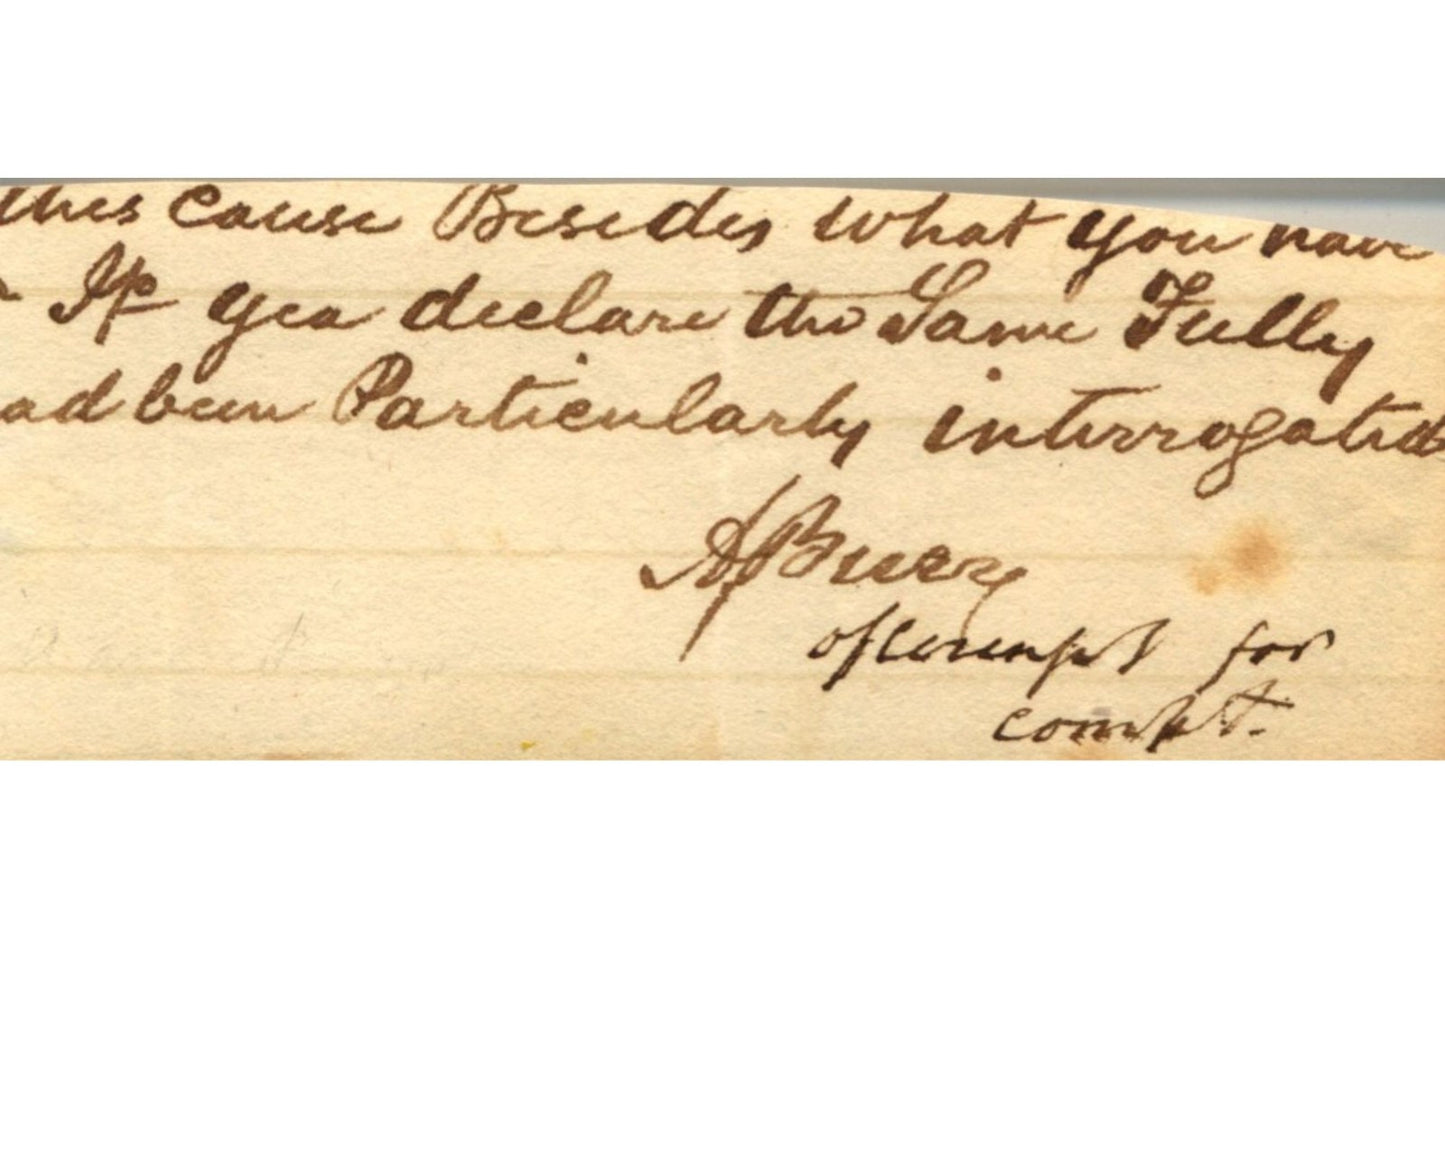 this cause Besides what you have
If yea declare the Same Fully
ad been Particularly interrogated
A Burr
of counsel for
complt.